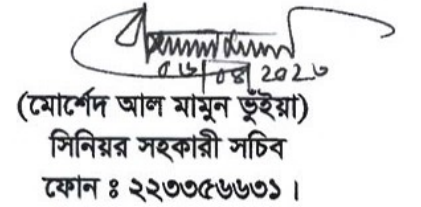 ০৬/০৪/২০২৩
(মোর্শেদ আল মামুন ভুঁইয়া)
সিনিয়র সহকারী সচিব
ফোন ঃ ২২৩৩৫৬৬৩১ ।